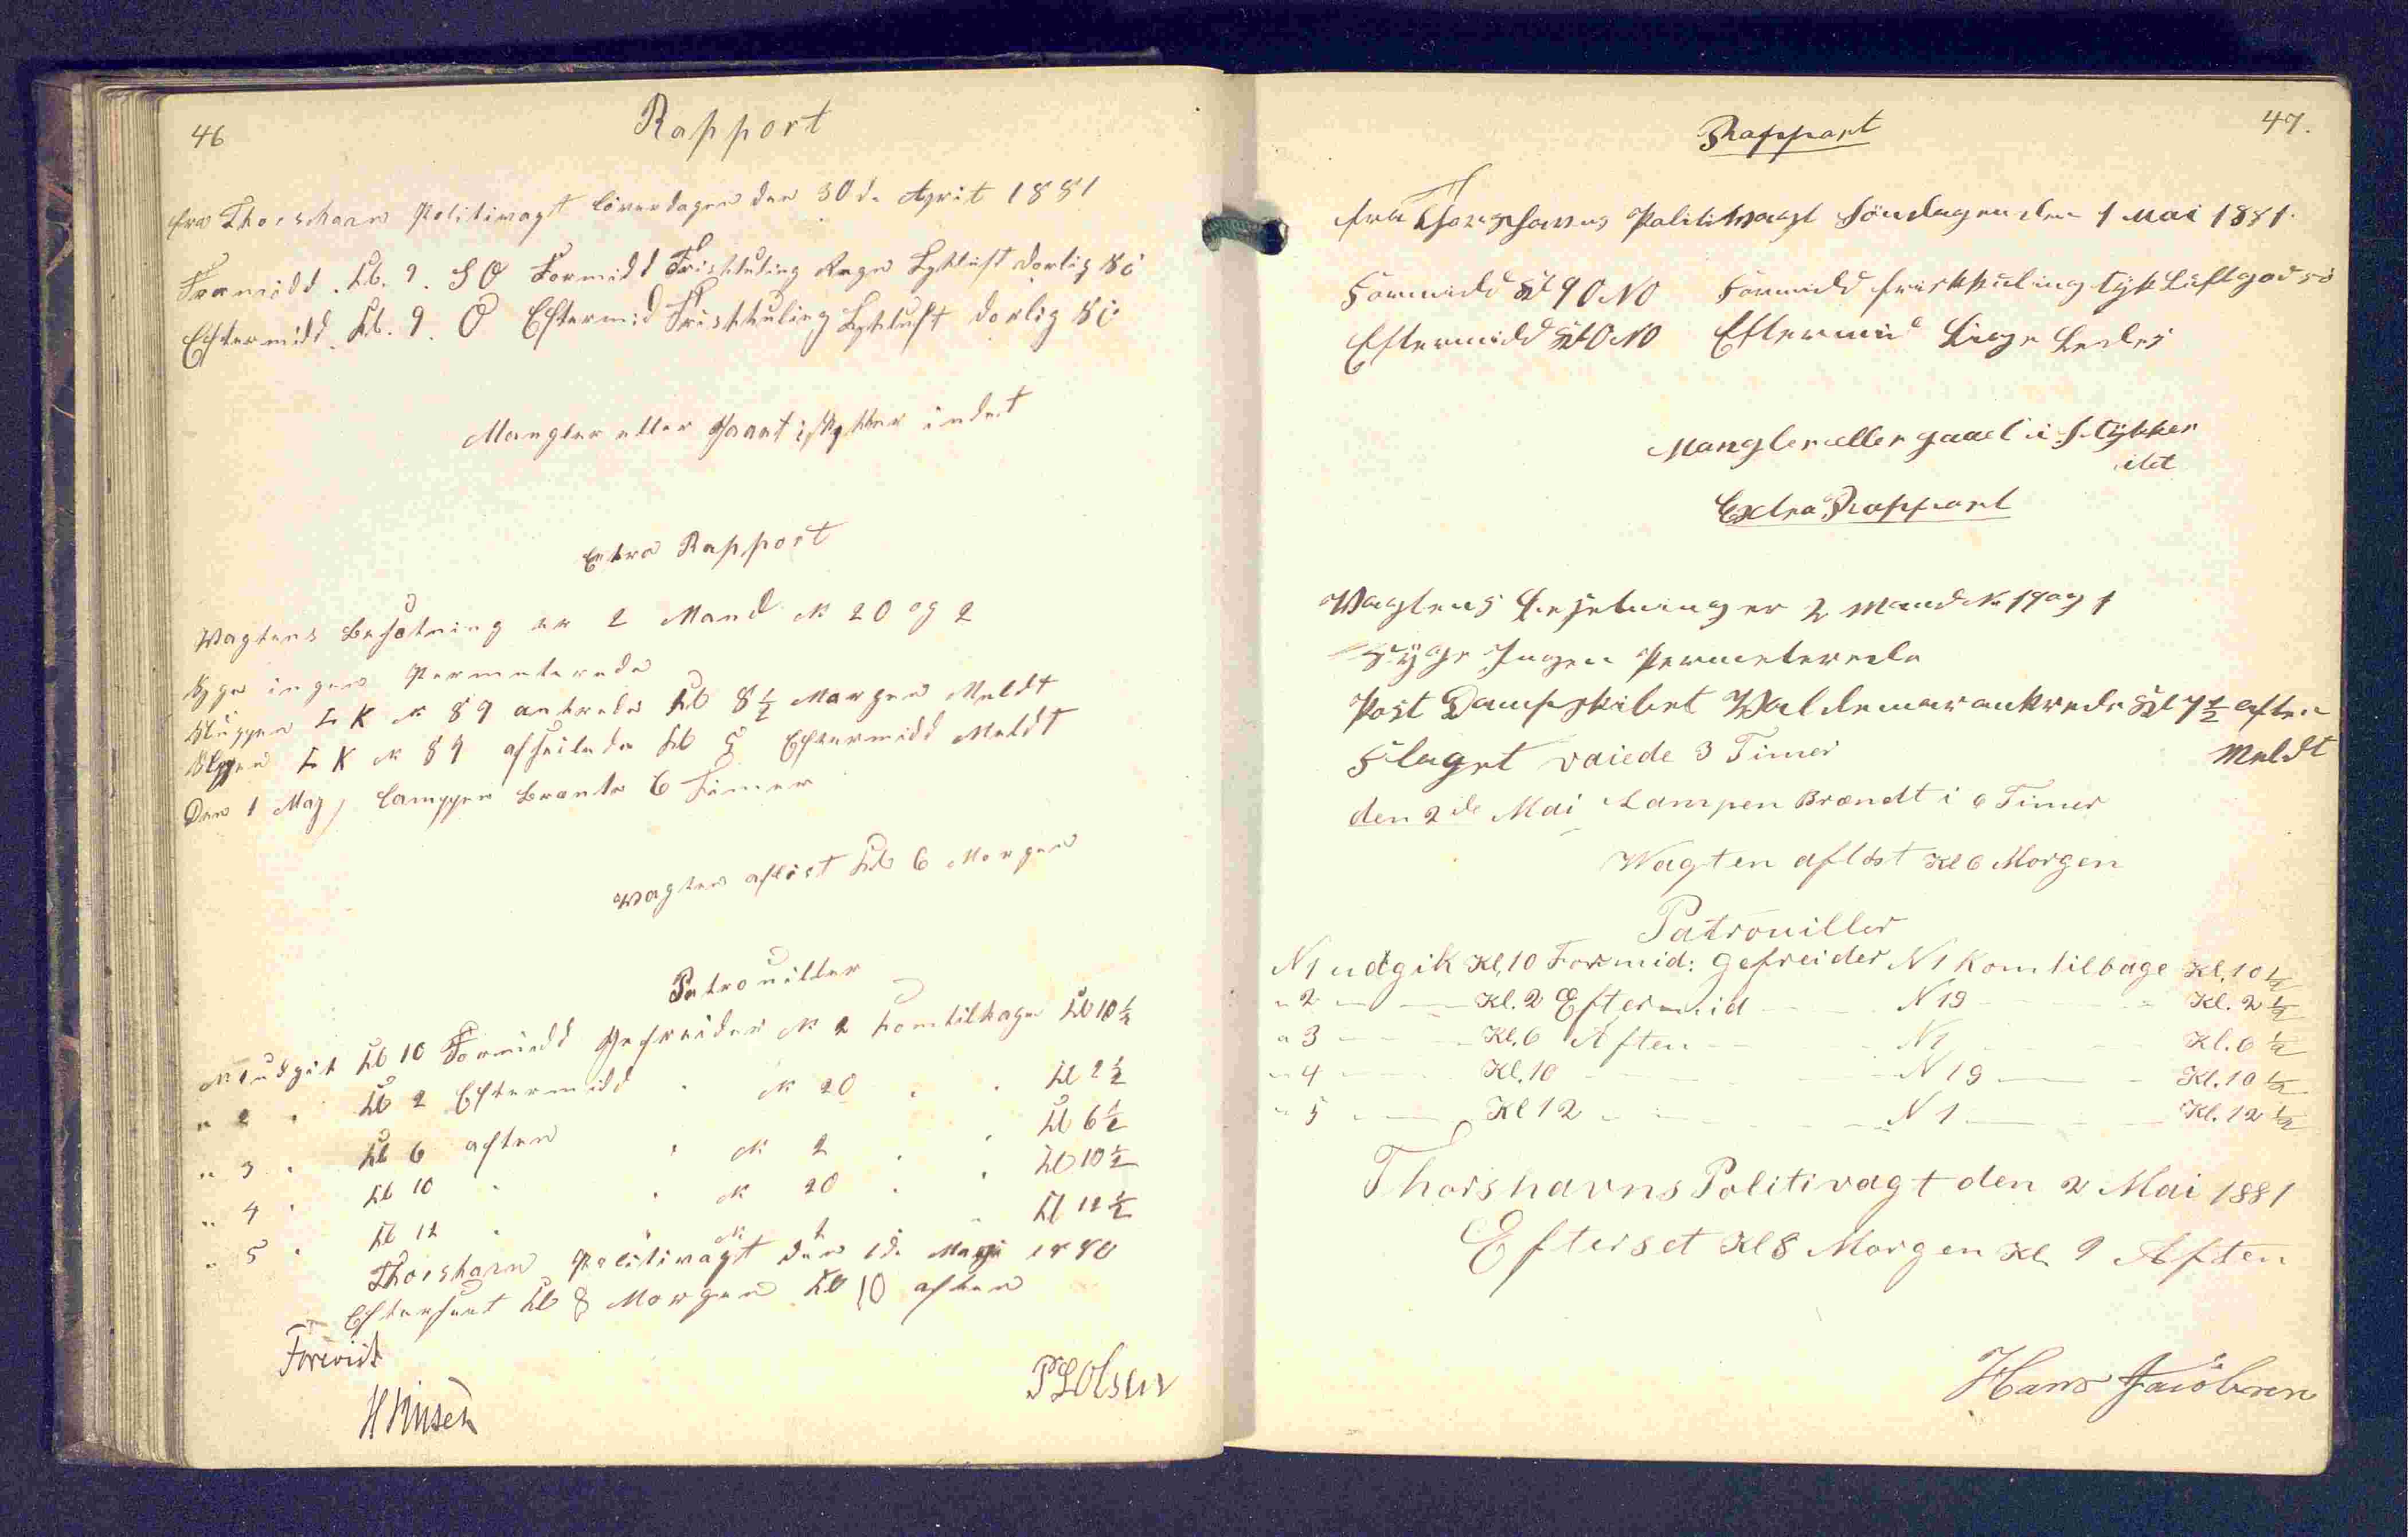 46
Rapport
fra Thorshavn Politivagt löverdagen den 30d. April 1881
Formidd. Kl. 9. S O Formidd Friskkuling Regn Tykluft dorlig Sö
Eftermidd. Kl. 9. O Eftermid Friskkuling Tykluft dorlig Sö
Mangler eller Gaaet i stykker indet
Extra Rapport
Wagtens besetning er 2 Mand N 20 og 2
Syge ingen Permeterede
Sluppen F K N 89 ankrede Kl 8 1/2 Morgen Meldt
Sluppen F K N 89 afseilede Kl 5 Eftermidd Meldt
Den 1 May, Lamppen brente 6 Timer
Wagten aflöst Kl 6 Morgen
Patrouiller
N 1 udgik Kl 10 Formidd Gefreider N 2 komtilbage Kl 10 1/2
" 2 " Kl 2 Eftermidd " N 20 " " Kl 2 1/2
" 3 " Kl 6 aften " N 2 " " Kl 6 1/2
" 4 " Kl 10 " " N 20 " " Kl 10 1/2
" 5 " Kl 12 " " N 2 " Kl 12 1/2
Thorshavn Politivagt den 1d. May 1880
Efterseet Kl 8 Morgen Kl 10 aften
Forevist
P Olsen
47.
Rapport
fra Thorshavns Politiwagt Söndagen den 1 Mai 1881.
Formidd Kl 9 O N O Formidd friskkuling tyk Luft god sö
Eftermidd Kl O N O Eftermid Lige Ledes
Mangler eller gaaet i Stykker
itet
Extra Rapport
Wagtens besetning er 2 Mand N 19 og 1
Syge Ingen Permeterede
Post Dampskibet Waldemar ankrede Kl 7 1/2 aften
Meldt
Flaget vaiede 3 Timer
den 2de Mai Lampen Brændt i 6 Timer
Wagten aflöst Kl 6 Morgen
Patrouiller
N 1 udgik Kl. 10 Formid: Gefreider N 1 Kom tilbage Kl. 10 1/2
" 2 — — Kl. 2 Eftermid — — N 19 — — " Kl. 2 1/2
" 3 — — Kl. 6 Aften — — N 1 — — Kl. 6 1/2
" 4 — — Kl. 10 — — N 19 — — Kl. 10 1/2
" 5 — — Kl 12 — — N 1 — — Kl. 12 1/2
Thorshavns Politivagt den 2 Mai 1881
Efterset Kl 8 Morgen Kl. 9 Aften
Hans Jacobsen